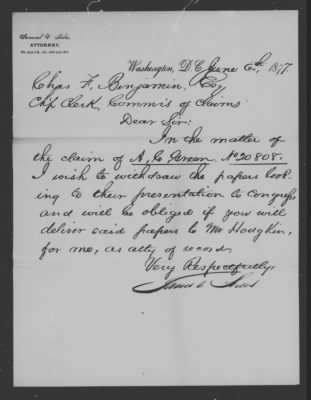 ATTORNEY.
Washington, D.C. June 6th, 1877.
Chas F. Benjamin, Esq
Chf Clerk, Commis of Claims
Dear Sir:
In the matter of
the claim of A, C, No 20808.
I wish to withdraw the papers look-
ing to their presentation to Congress
and will be obliged if you will
deliver said papers to Mr Hodgkin,
for me, as atty of record,
Very Respectfully